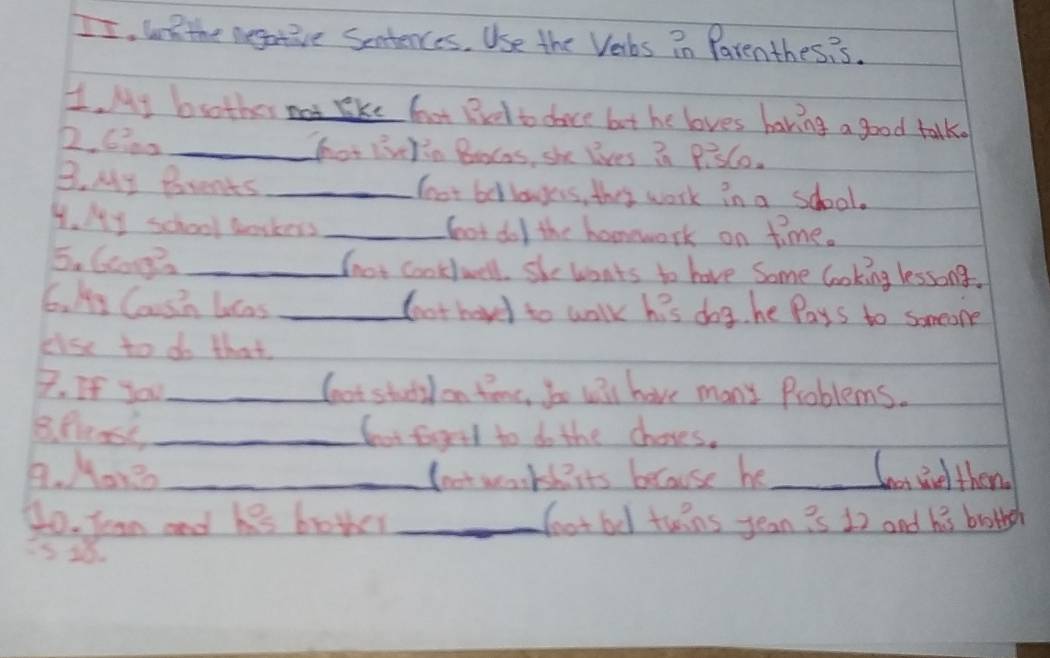 II. Write the negative Sentences. Use the Verbs in Parenthesis.
1. My brother not like (not like) to dance but he loves having a good talk.
2. Gina ______ (not live) in Barocas, she lives in Pisco.
3. My Parents ______ (not be) lawyers, they work in a school.
4. My school workers ______ (not do) the homework on time.
5. Georgia ______ (not cook) well. She wants to have Some Cooking lessong.
6. My Cousin Lucas ______ (not have) to walk his dog. he Pays to someone
else to do that.
7. If you ______ (not study) on time, you will have many Problems.
8. Please, ______ (not forget) to do the chores.
9. Mario ______ (not wear) shirts because he ______ (not like) then.
10. Jean and his brother ______ (not be) twins jean is 12 and his brother
is 18.